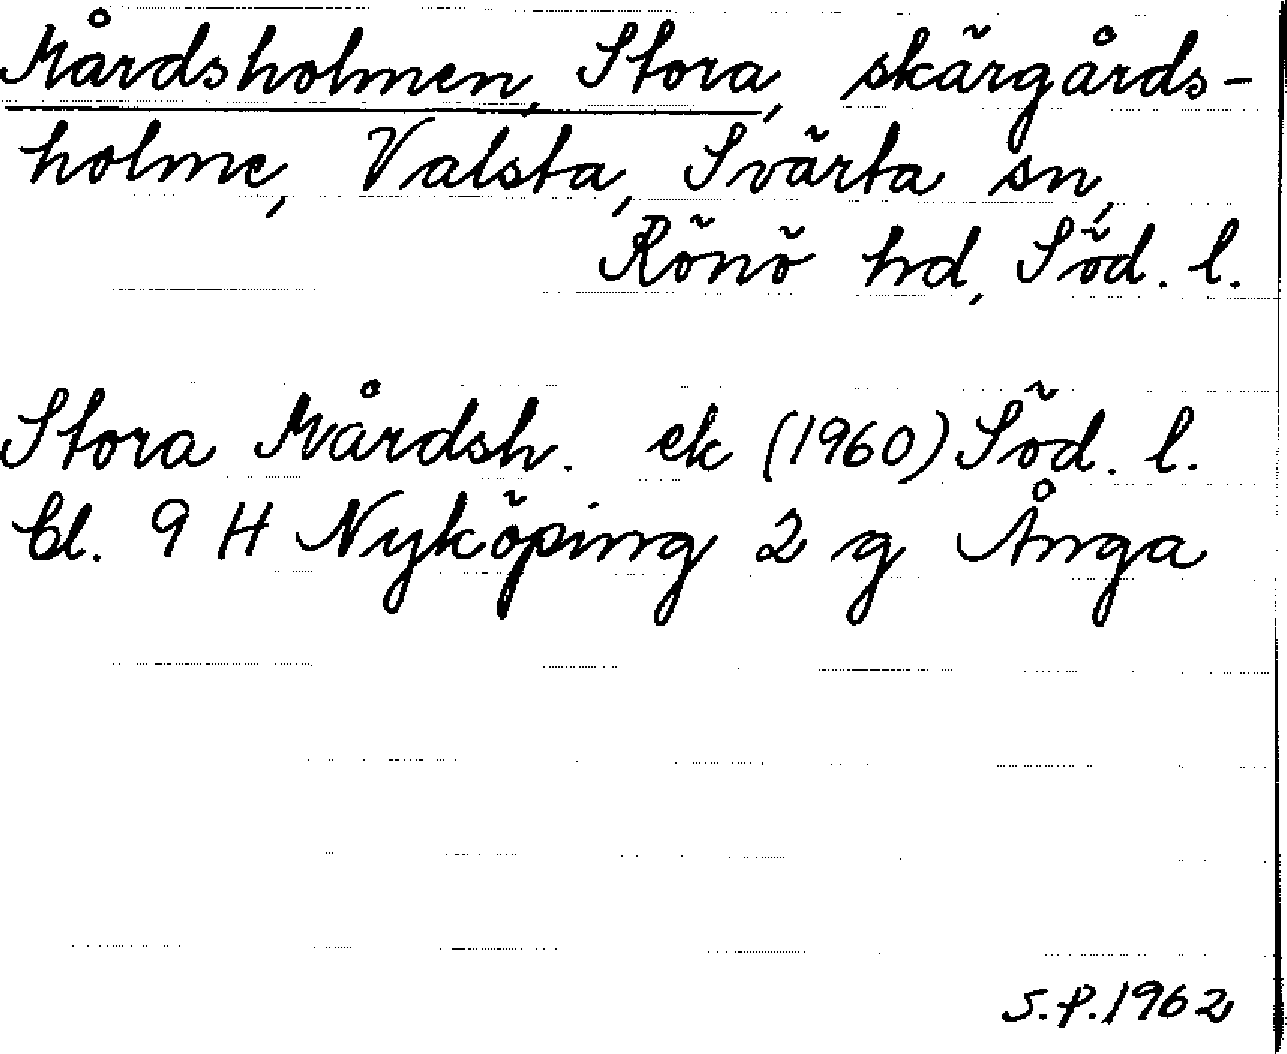 Mårdsholmen, Stora, skärgårds-
holme, Valsta, Svärta sn,
Rönö hd, Söd. l.
Stora Mårdsh. ek (1960) Söd. l.
bl. 9 H Nyköping 2 g Ånga
S.P. 1962